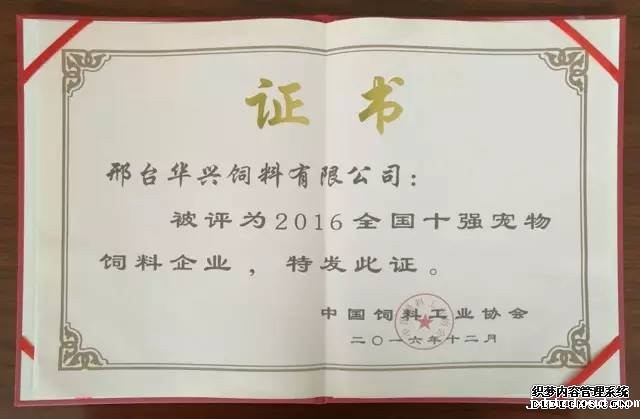 证书
邢台华兴饲料有限公司：
被评为2016全国十强宠物
饲料企业，特发此证。
中国饲料工业协会
二〇一六年十二月
织梦内容管理系统